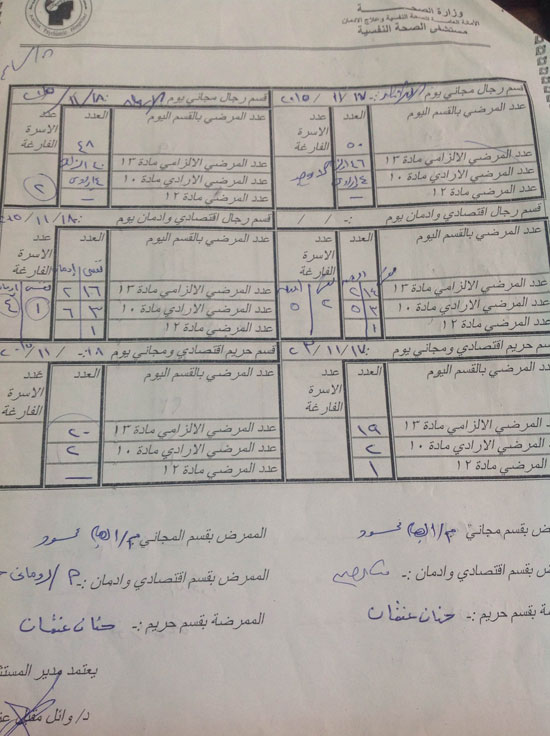 وزارة الصحـــــــة
الأمانة العامة للصحة النفسية وعلاج الادمان
مستشفى الصحة النفسية
قسم رجال مجاني يوم ٢٠١٥/١١/١٧
عدد المرضي بالقسم اليوم
العدد
عدد الاسرة الفارغة
٥٠
عدد المرضي الالزامي مادة ١٣
٤٦
عدد المرضي الارادي مادة ١٠
٤
عدد المرضي مادة ١٢
—
قسم رجال مجاني يوم ١١/١٨
عدد المرضي بالقسم اليوم
العدد
عدد الاسرة الفارغة
٤٨
عدد المرضي الالزامي مادة ١٣
٤٠
عدد المرضي الارادي مادة ١٠
٢
عدد المرضي مادة ١٢
—
قسم رجال اقتصادي وادمان يوم :ـ / /
عدد المرضي بالقسم اليوم
العدد
عدد الاسرة الفارغة
عدد المرضي الالزامي مادة ١٣
١٤ ٢
عدد المرضي الارادي مادة ١٠
٣ ٥
٢ ٥
عدد المرضي مادة ١٢
١
قسم رجال اقتصادي وادمان يوم ١١/١٨
عدد المرضي بالقسم اليوم
العدد
عدد الاسرة الفارغة
عدد المرضي الالزامي مادة ١٣
١٦ ٢
عدد المرضي الارادي مادة ١٠
٣ ٦
١ ٤
عدد المرضي مادة ١٢
١
قسم حريم اقتصادي ومجاني يوم ١١/١٧
عدد المرضي بالقسم اليوم
العدد
عدد الاسرة الفارغة
عدد المرضي الالزامي مادة ١٣
١٩
عدد المرضي الارادي مادة ١٠
٢
عدد المرضي مادة ١٢
١
قسم حريم اقتصادي ومجاني يوم ١١/١٨
عدد المرضي بالقسم اليوم
العدد
عدد الاسرة الفارغة
عدد المرضي الالزامي مادة ١٣
٢٠
عدد المرضي الارادي مادة ١٠
٢
عدد المرضي مادة ١٢
—
ض بقسم مجاني م/ايهاب محمود
الممرض بقسم المجاني م/ايهاب محمود
ض بقسم اقتصادي وادمان :ـ
الممرض بقسم اقتصادي وادمان :ـ م/روماني
ضة بقسم حريم :ـ حنان عثمان
الممرضة بقسم حريم :ـ حنان عثمان
يعتمد مدير المستش
د/ وائل